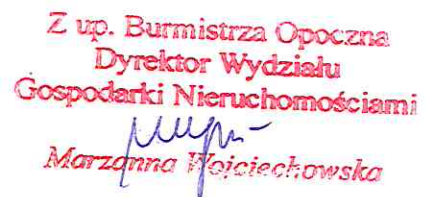 Z up. Burmistrza Opoczna
Dyrektor Wydziału
Gospodarki Nieruchomościami
Marzanna Wojciechowska